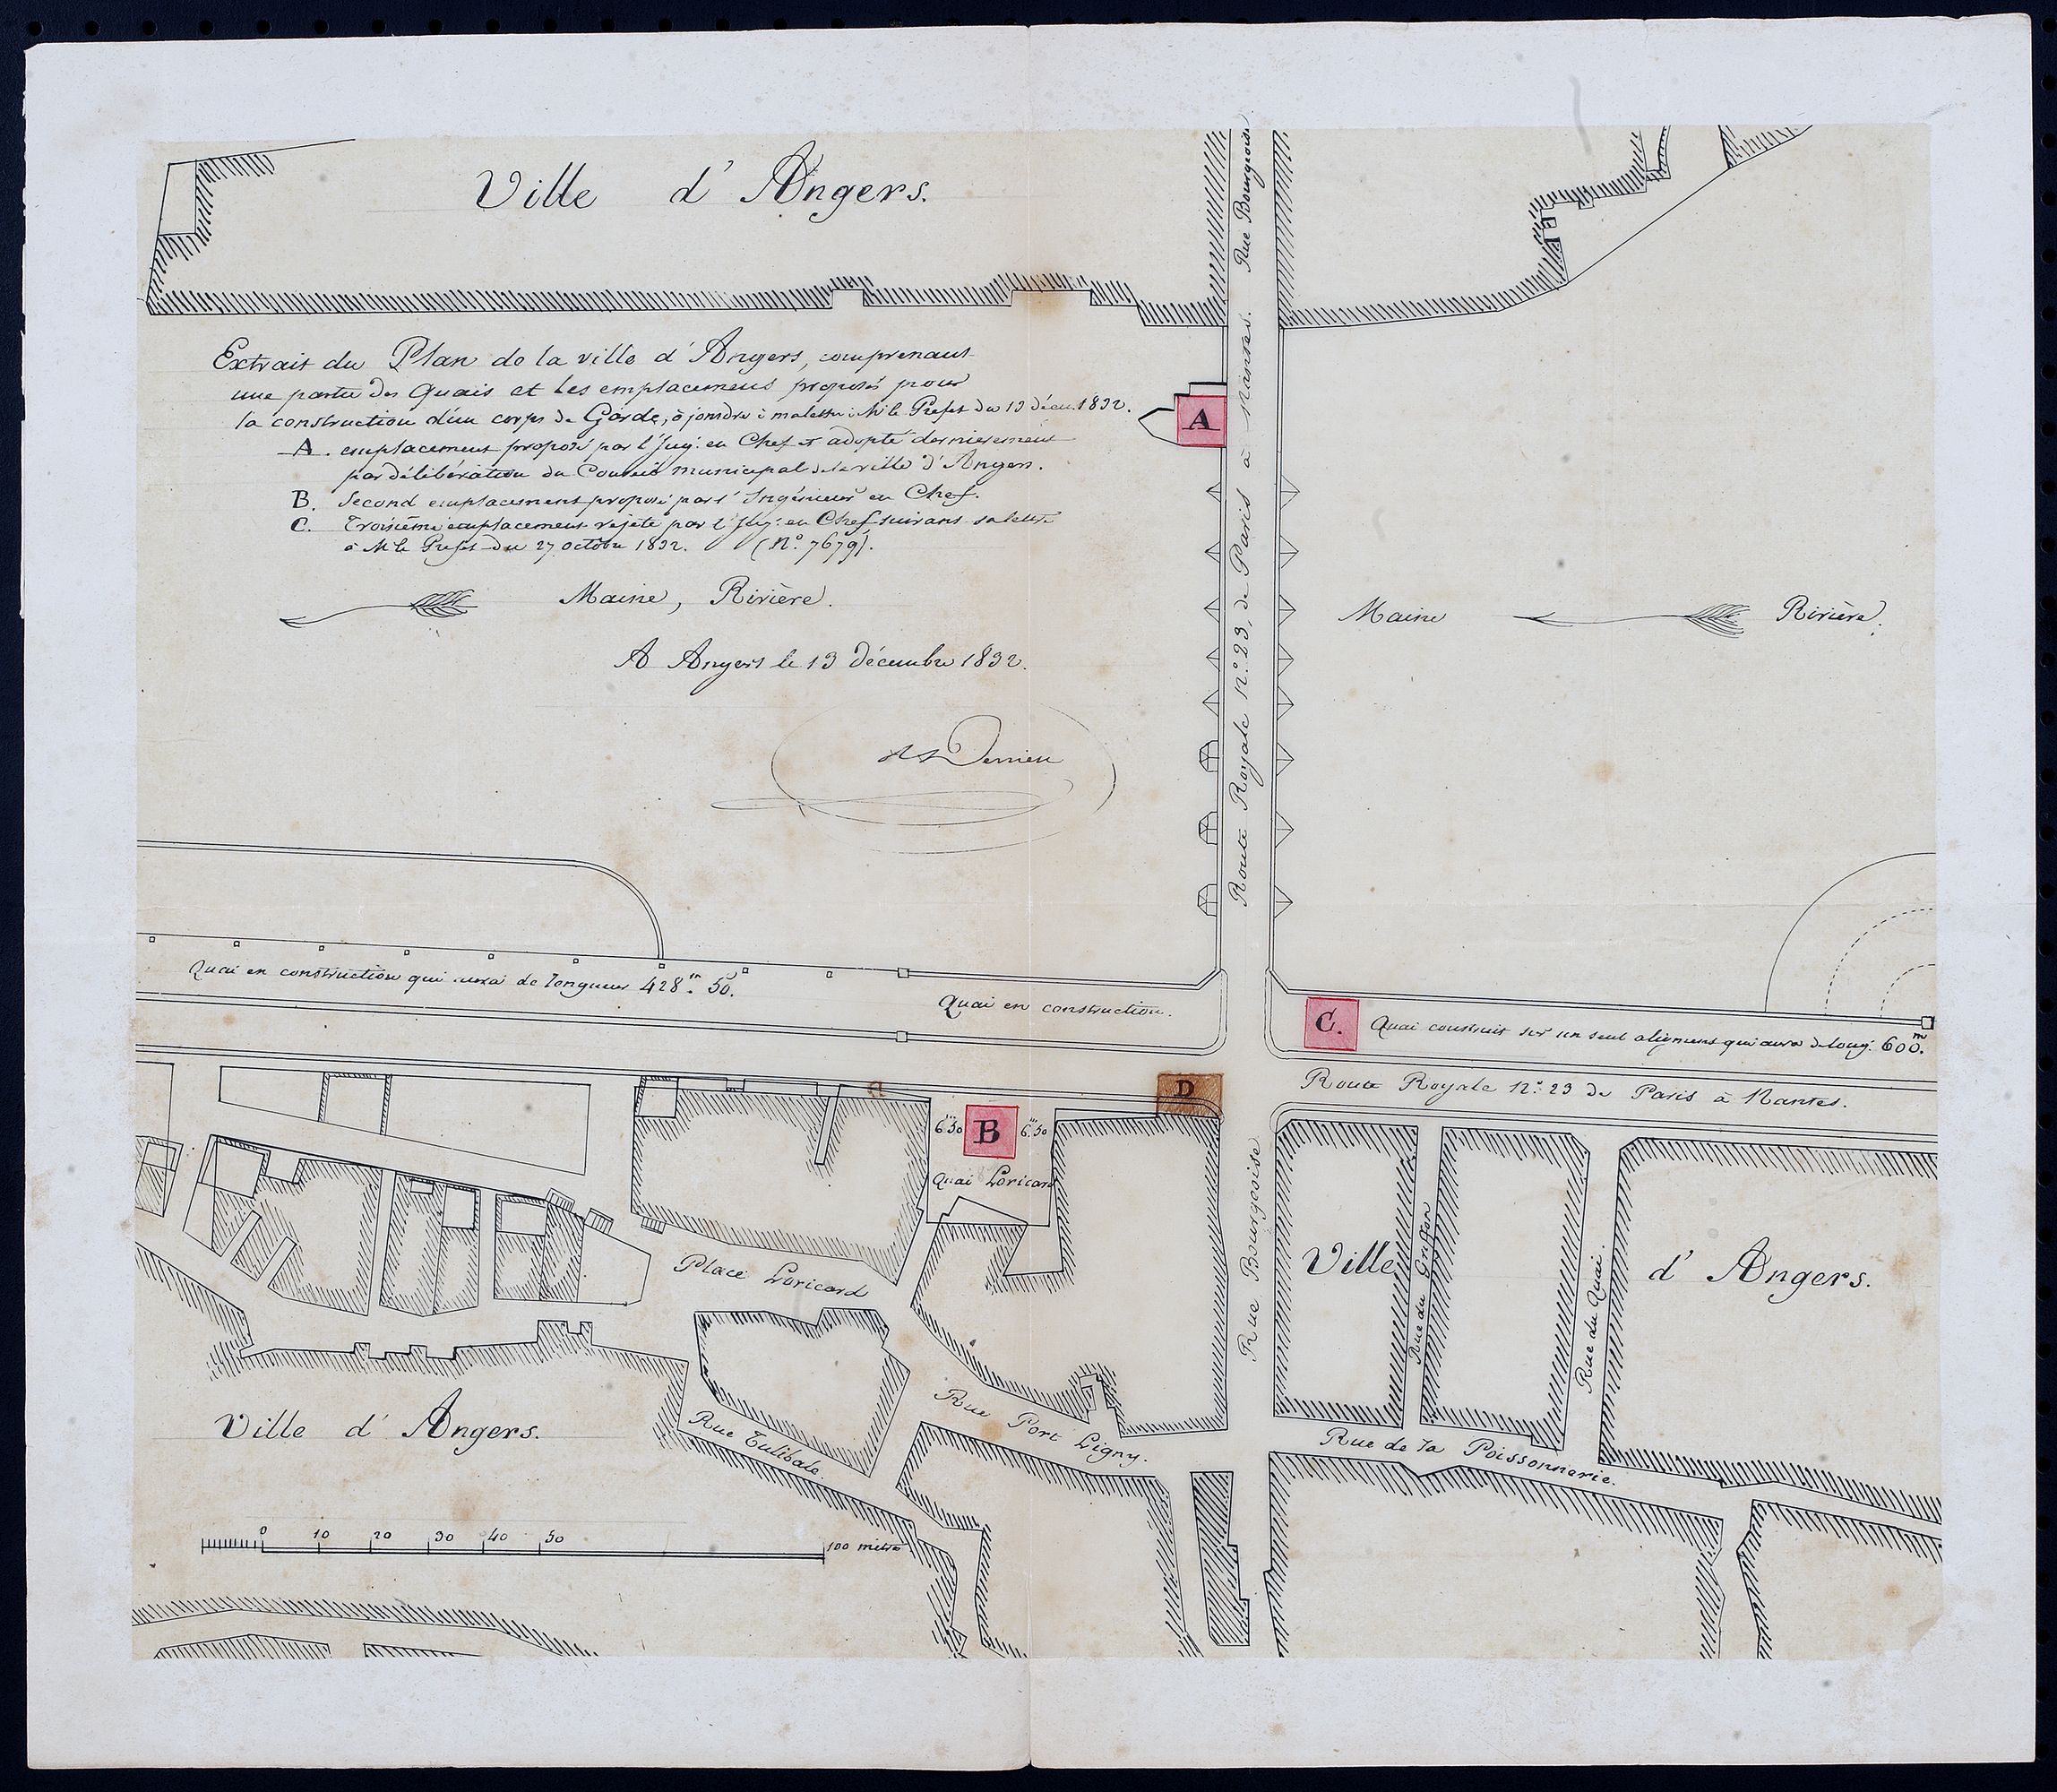 Ville d'Angers.
Rue Bourgeoise
Extrait du Plan de la ville d'Angers, comprenant
une partie des Quais et les emplacemens proposés pour
la construction d'un corps de Garde, à joindre à ma lettre à Mr le Préfet du 13 décem. 1832.
A. emplacement proposé par l'Ing. en Chef et adopté dernierement
par délibération du Conseil municipal de la ville d'Angers.
B. Second emplacement proposé par l'Ingénieur en Chef.
C. Troisième emplacement rejeté par l'Ing. en Chef suivant sa lettre
à Mr le Préfet du 27 octobre 1832. (N.° 7679).
A
Maine, Rivière.
Maine Rivière.
A Angers le 13 décembre 1832.
Derrien
Route Royale N.° 23, de Paris à Nantes.
Quai en construction qui aura de longueur 428.m 50.
Quai en construction.
C.
Quai construit sur un seul alignement qui aura de long. 600.m
Route Royale N.° 23 de Paris à Nantes.
D
6.m50
B
6.m50
Quai Loricard
Place Loricard
Rue Bourgeoise
Ville d'Angers.
Rue du Griffon
Rue du Quai.
Ville d'Angers.
Rue Tulibale
Rue Port Ligny.
Rue de la Poissonnerie.
0 10 20 30 40 50 100 mètres